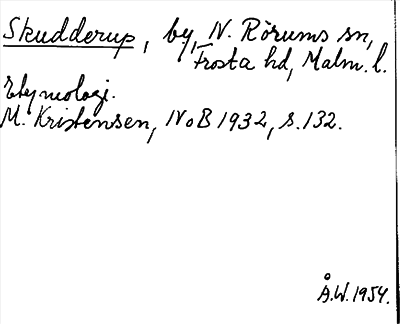 Skudderup, by, N. Rörums sn,
Frosta hd, Malm. l.
Etymologi.
M. Kristensen, NoB 1932, s. 132.
Å.W. 1954.